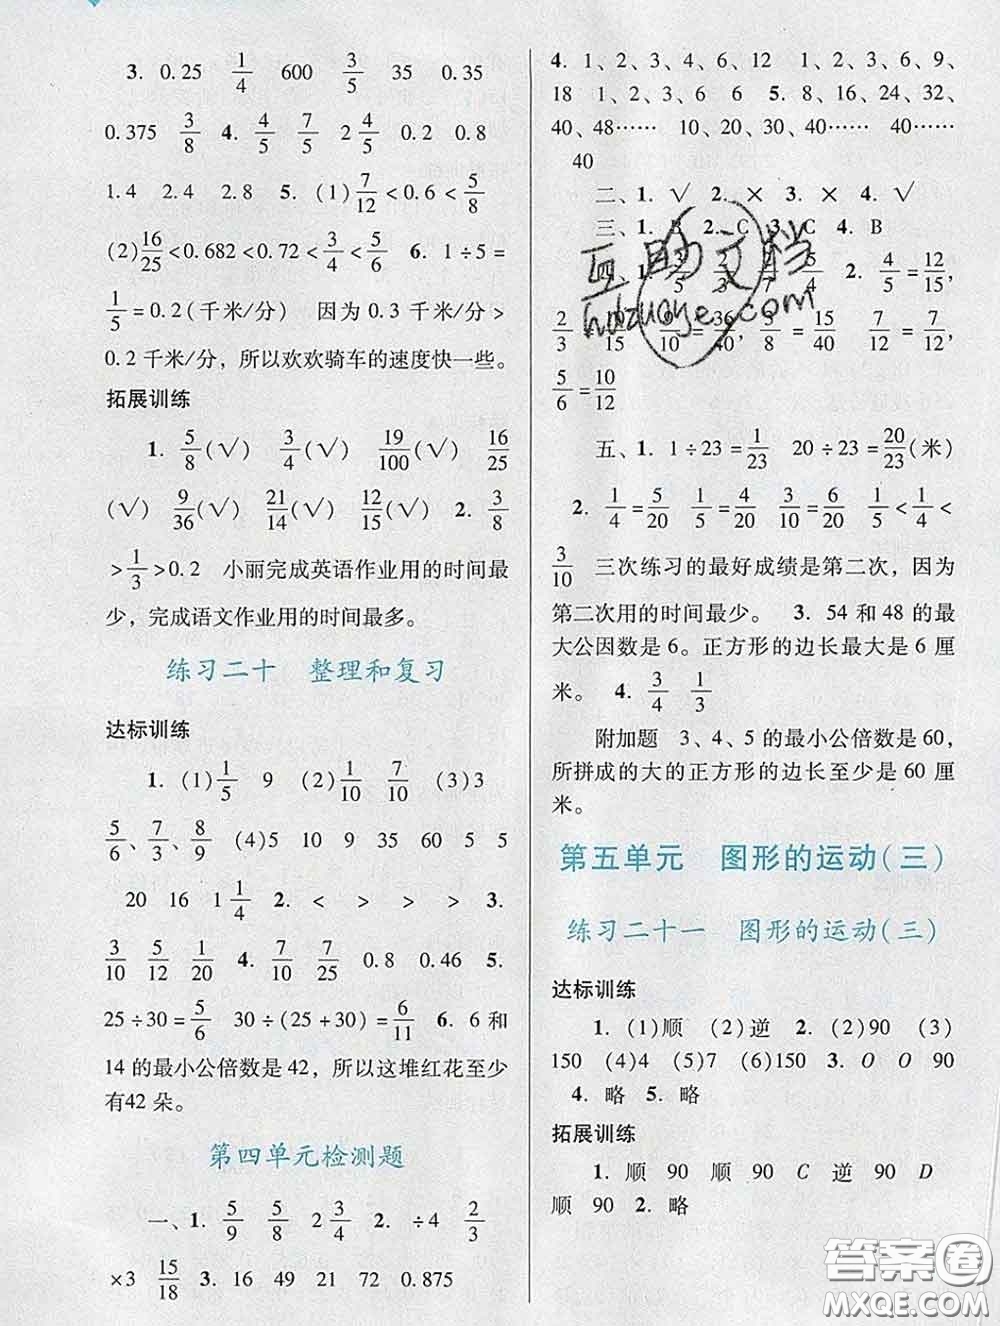 3. 0.25 1/4 600 3/5 35 0.35
0.375 3/8 4. 4/5 7/5 2 4/5 0.2 0.8
1.4 2.4 2.8 5. (1) 7/12 < 0.6 < 5/8
(2) 16/25 < 0.68 < 0.72 < 3/4 < 5/6 6. 1÷5=
1/5 = 0.2(千米/分) 因为 0.3 千米/分>
0.2 千米/分，所以欢欢骑车的速度快一些。
拓展训练
1. 5/8(√) 3/4(√) 19/100(√) 16/25
(√) 9/36(√) 21/14(√) 12/15(√) 2. 3/8
> 1/3 > 0.2 小丽完成英语作业用的时间最
少，完成语文作业用的时间最多。
练习二十 整理和复习
达标训练
1. (1) 1/5 9 (2) 1/10 7/10 (3)3
5/6、7/3、8/9 (4)5 10 9 35 60 5 5
20 16 1 1/4 2. < > > > 3.
3/10 5/12 1/20 4. 7/10 7/25 0.8 0.46 5.
25÷30= 5/6 30÷(25+30)= 6/11 6. 6 和
14 的最小公倍数是 42，所以这堆红花至少
有42 朵。
第四单元检测题
一、1. 5/9 5/8 2 3/4 2. ÷4 2/3
×3 15/18 3. 16 49 21 72 0.875
4. 1、2、3、4、6、12 1、2、3、6、9、
18 1、2、3、6 6 5. 8、16、24、32、
40、48…… 10、20、30、40…… 40……
40
二、1. √ 2. × 3. × 4. √
三、1. B 2. C 3. C 4. B
四、1. 2. 4/5 = 12/15，
2/3 15 10 = 36/40，3/8 = 15/40 7/10 = 7/10，
5/6 = 10/12
五、1. 1÷23= 1/23 20÷23= 20/23(米)
2. 1/4 = 5/20 1/5 = 4/20 3/10 = 6/20 1/5 < 1/4 <
3/10 三次练习的最好成绩是第二次，因为
第二次用的时间最少。 3. 54 和 48 的最
大公因数是 6。正方形的边长最大是 6 厘
米。 4. 3/4 1/3
附加题 3、4、5 的最小公倍数是 60，
所拼成的大的正方形的边长至少是 60 厘
米。
第五单元 图形的运动(三)
练习二十一 图形的运动(三)
达标训练
1. (1)顺 (2)逆 2. (2)90 (3)
150 (4)4 (5)7 (6)150 3. O O 90
4. 略 5. 略
拓展训练
1. 顺 90 顺 90 C 逆 90 D
顺 90 2. 略
答案卷
MXQE.COM